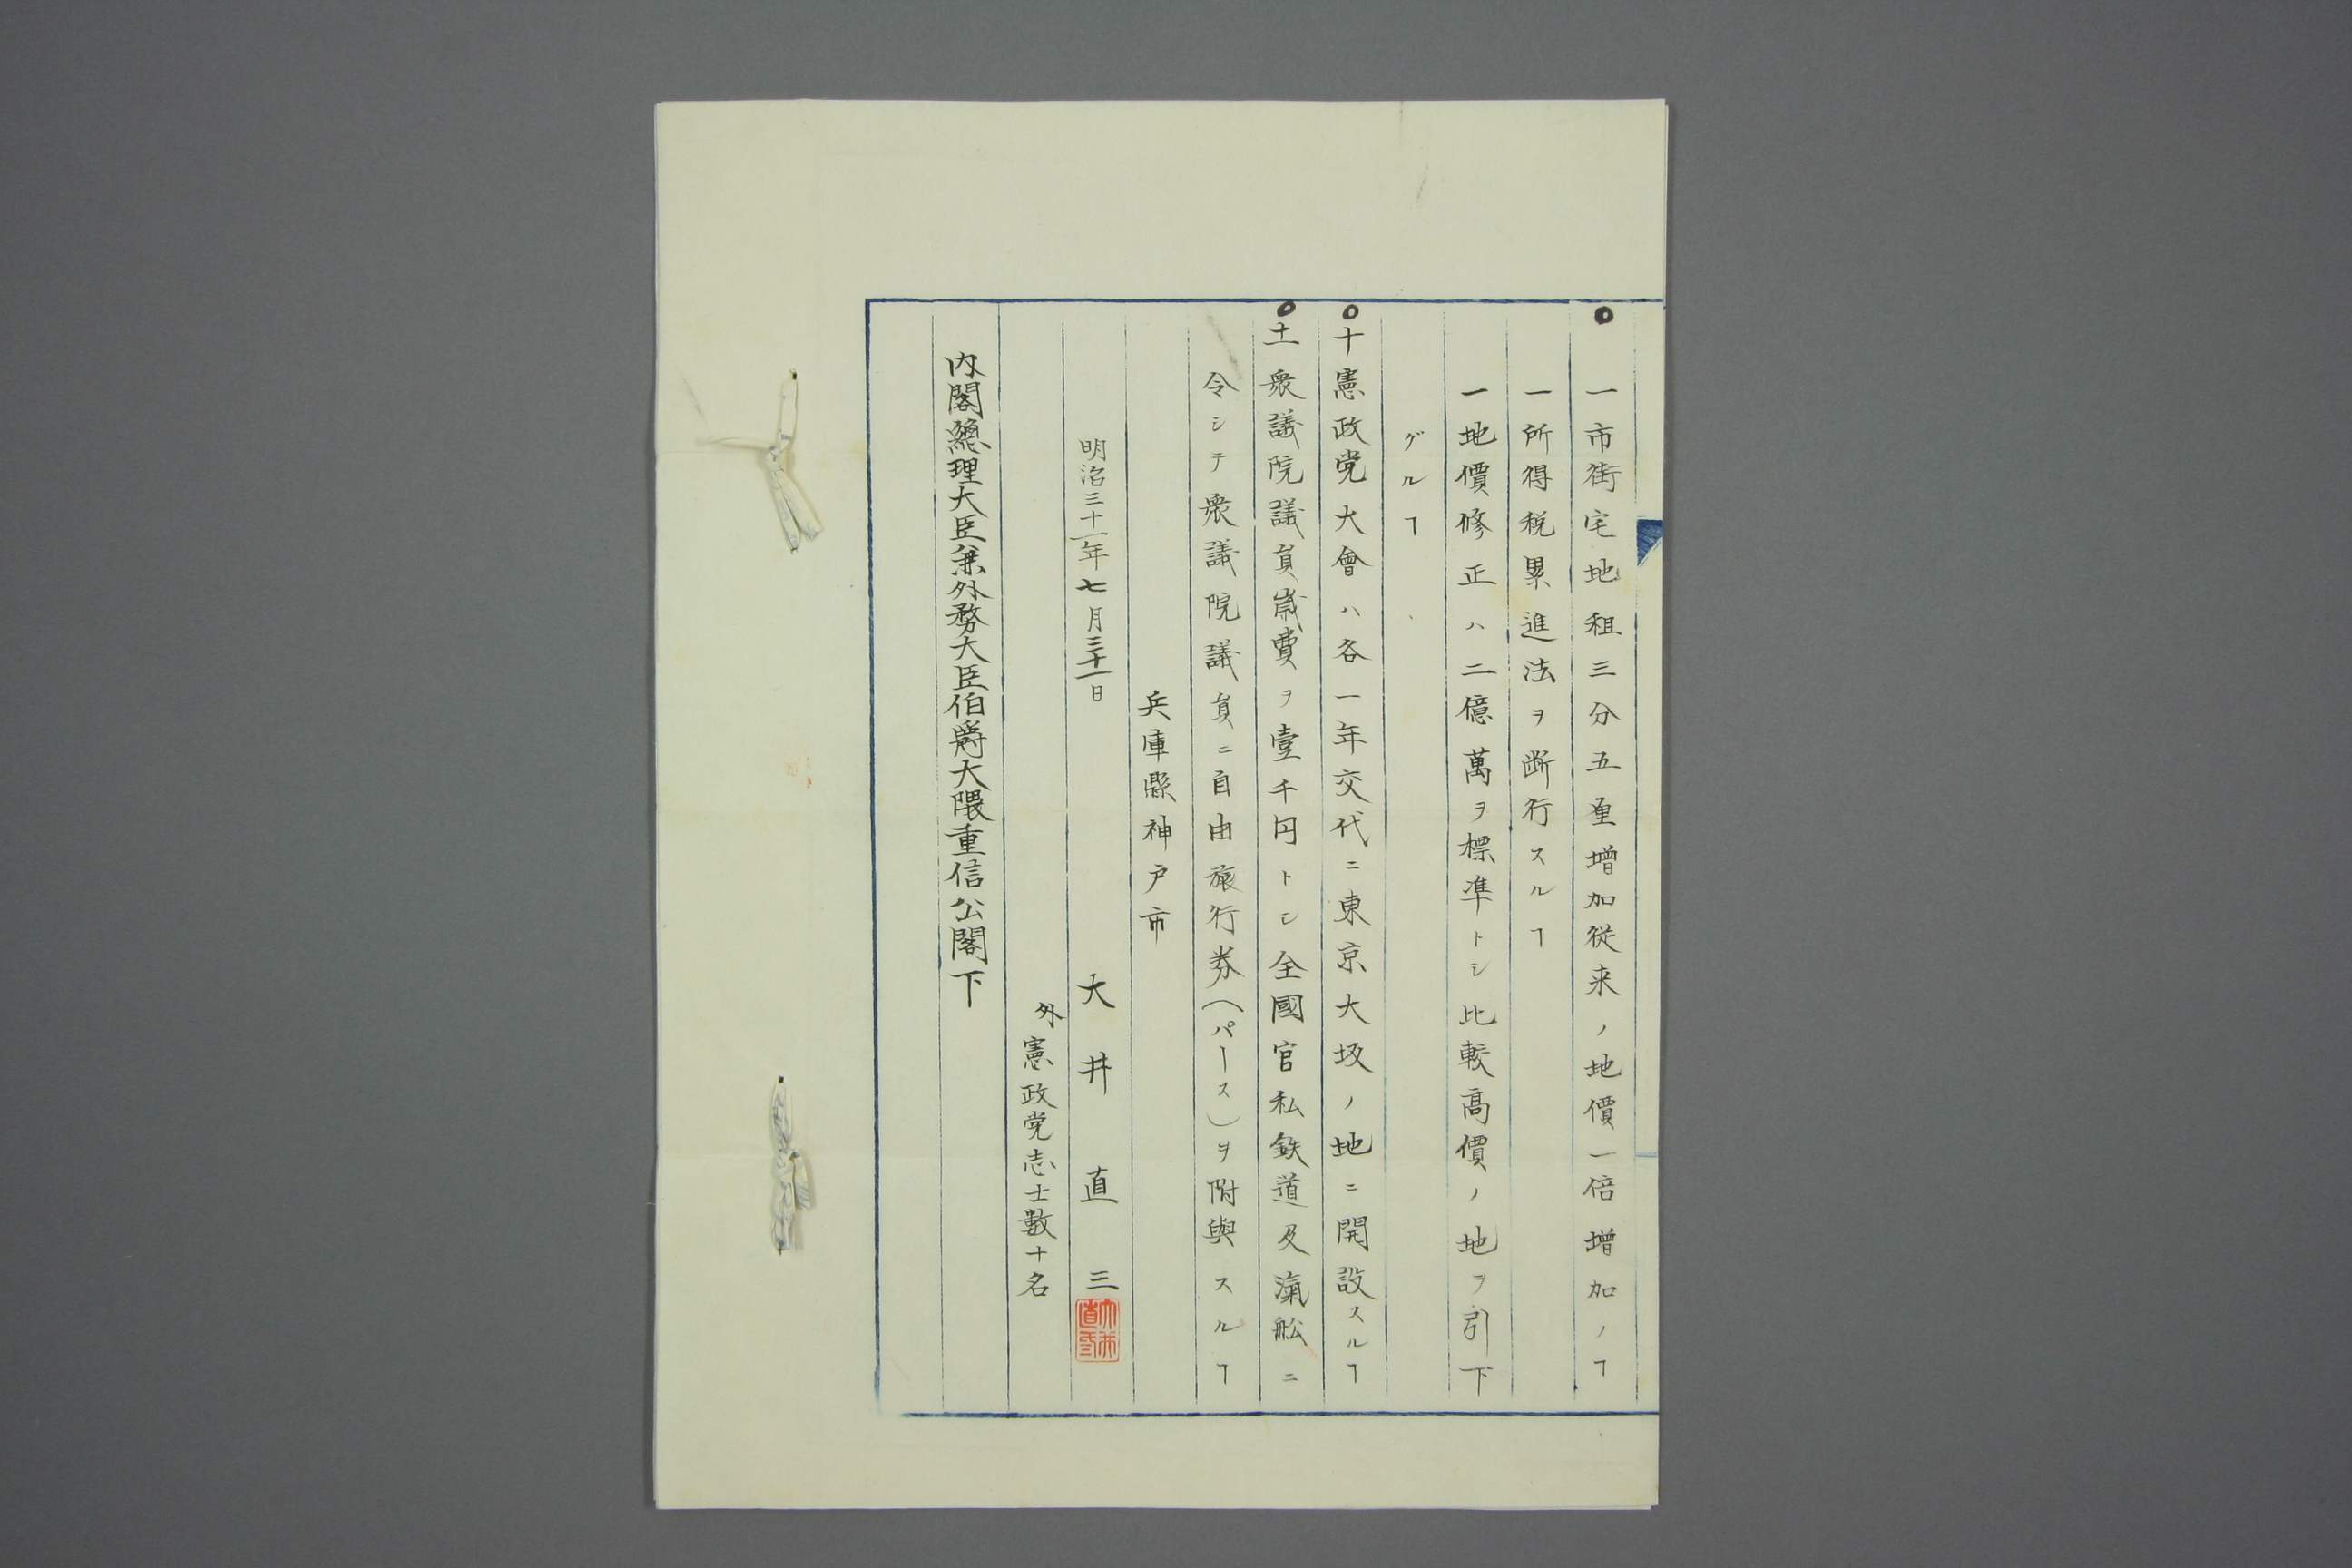 一市街宅地租三分五厘増加従来ノ地價一倍増加ノヿ
一所得税累進法ヲ断行スルヿ
一地價修正ハ二億萬ヲ標準トシ比較高價ノ地ヲ引下
グルヿ
十憲政党大會ハ各一年交代ニ東京大坂ノ地ニ開設スルヿ
十一衆議院議員歳費ヲ壹千円トシ全國官私鉄道及滊舩ニ
令シテ衆議院議員ニ自由旅行券(パース)ヲ附與スルヿ
兵庫縣神戸市
明治三十一年七月三十一日
大井直三
外憲政党志士數十名
内閣總理大臣兼外務大臣伯爵大隈重信公閣下